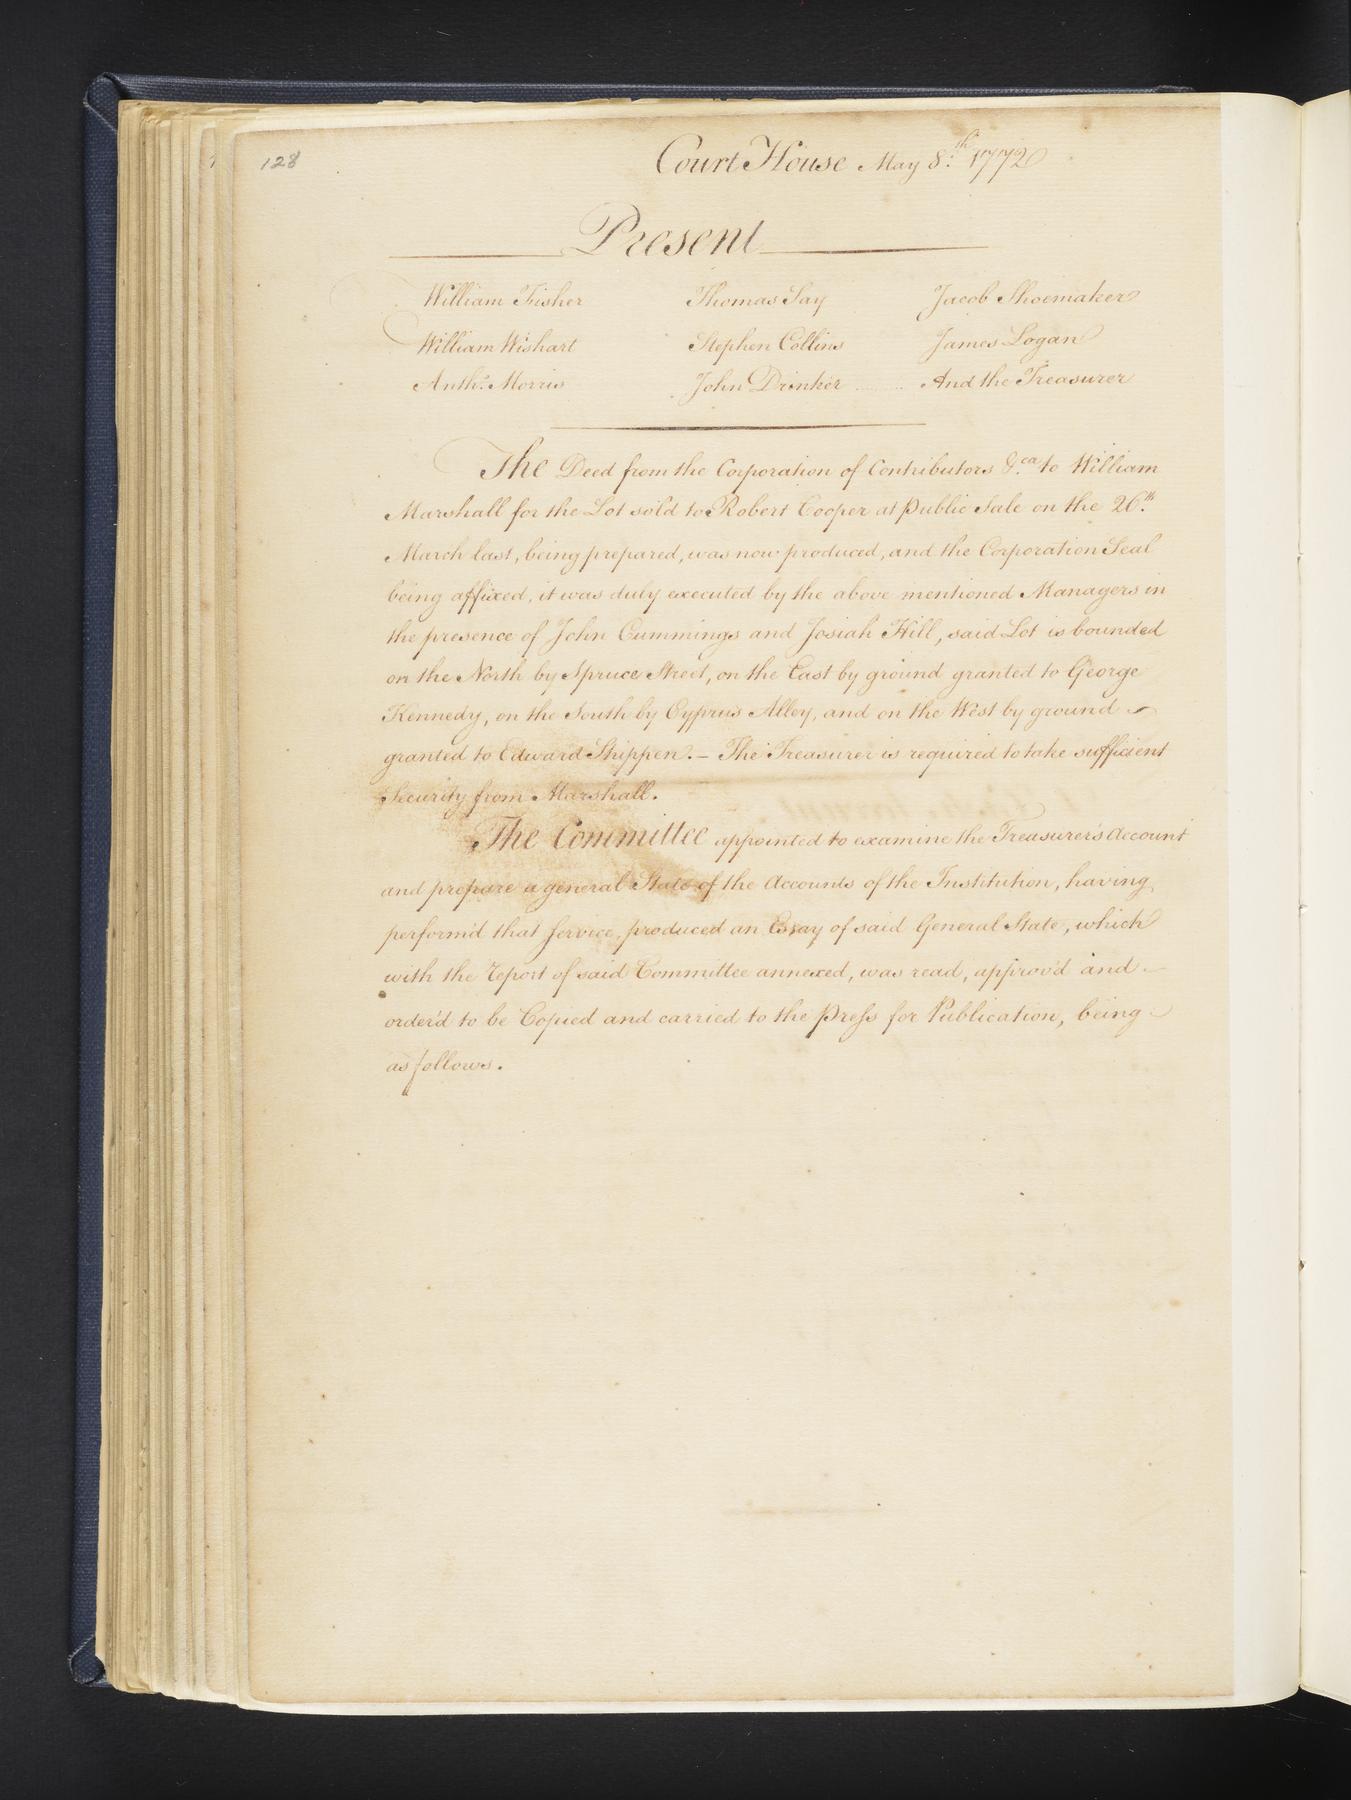 128
Court House May 8.th 1772
Present
William Fisher Thomas Say Jacob Shoemaker
William Wishart Stephen Collins James Logan
Anthy. Morris John Drinker And the Treasurer
The Deed from the Corporation of Contributors &.ca to William
Marshall for the Lot sold to Robert Cooper at Public Sale on the 26.th
March last, being prepared, was now produced, and the Corporation Seal
being affixed, it was duly executed by the above mentioned Managers in
the presence of John Cummings and Josiah Hill, said Lot is bounded
on the North by Spruce Street, on the East by ground granted to George
Kennedy, on the South by Cyprus Alley, and on the West by ground
granted to Edward Shippen. – The Treasurer is required to take sufficient
Security from Marshall.
The Committee appointed to examine the Treasurer's Account
and prepare a general State of the Accounts of the Institution, having
perform'd that Service, produced an Essay of said General State, which
with the report of said Committee annexed, was read, approv'd and
order'd to be Copied and carried to the Press for Publication, being
as follows.